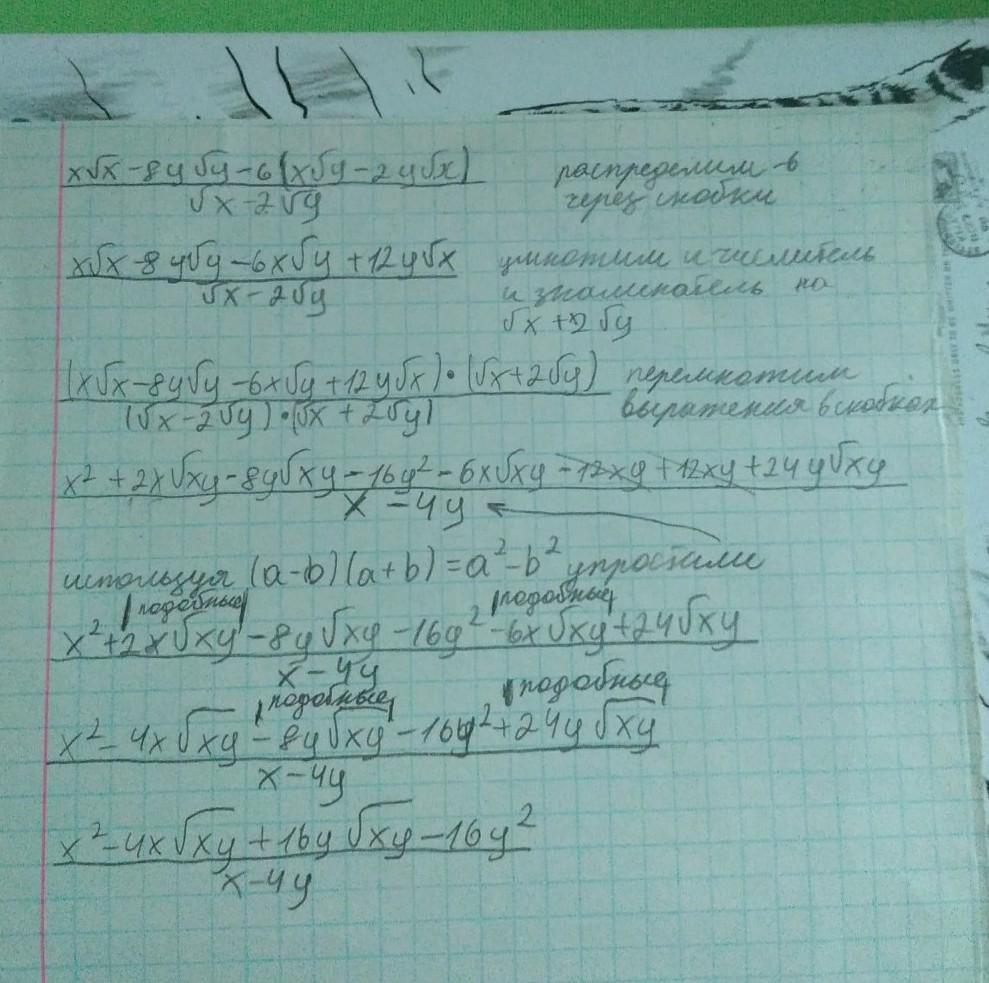 x√x-8y√y-6(x√y-2y√x) распределим -6
√x-2√y через скобки
x√x-8y√y-6x√y+12y√x умножим и числитель
√x-2√y и знаменатель на
√x+2√y
(x√x-8y√y-6x√y+12y√x)•(√x+2√y) перемножим
(√x-2√y)•(√x+2√y) выражения в скобках
x²+2x√xy-8y√xy-16y²-6x√xy-12xy+12xy+24y√xy
x-4y
используя (a-b)(a+b)=a²-b² упростили
подобные подобные
x²+2x√xy-8y√xy-16y²-6x√xy+24√xy
x-4y
подобные подобные
x²-4x√xy-8y√xy-16y²+24y√xy
x-4y
x²-4x√xy+16y√xy-16y²
x-4y